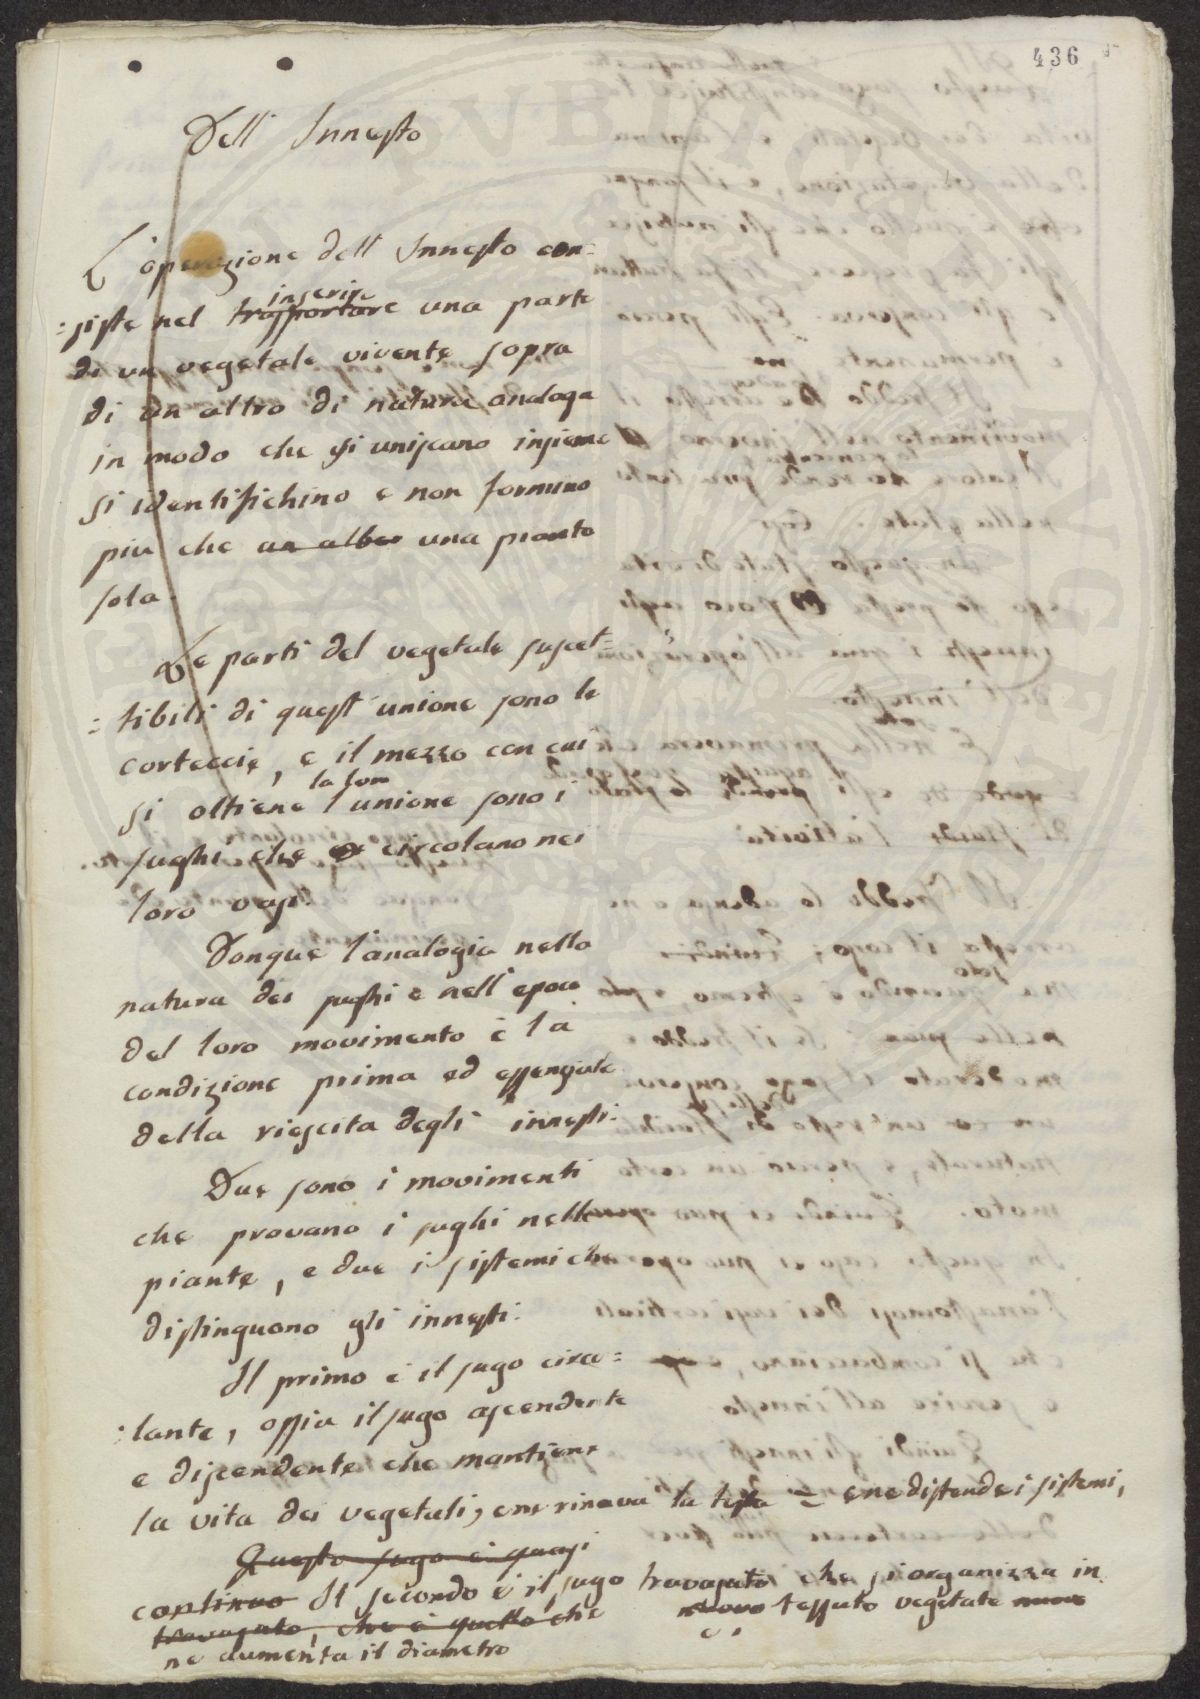 436
Dell' Innesto
L'operazione dell' Innesto con=
inserire
=siste nel trasportare una parte
di un vegetale vivente sopra
di un altro di natura analoga
in modo che si uniscano insieme
si identifichino e non formino
piu che un albero una pianta
sola.
Le parti del vegetale suscet=
=tibili di quest' unione sono le
corteccie, e il mezzo con cui
la loro
si ottiene l'unione sono i
sughi che circolano nei
loro vasi.
Donque l'analogia nella
natura dei sughi e nell' epoca
del loro movimento è la
condizione prima ed essenziale
della riescita degli innesti.
Due sono i movimenti
che provano i sughi nelle
piante, e due i sistemi che
distinguono gli innesti.
Il primo è il sugo circo=
:lante, ossia il sugo ascendente
e discendente che mantiene
la vita dei vegetali, e ne distende i sistemi,
Questo sugo è quasi
continuo Il secondo è il sugo travasato che si organizza in
travasato, che è quello che nuovo tessuto vegetale nuovo
ne aumenta il diametro